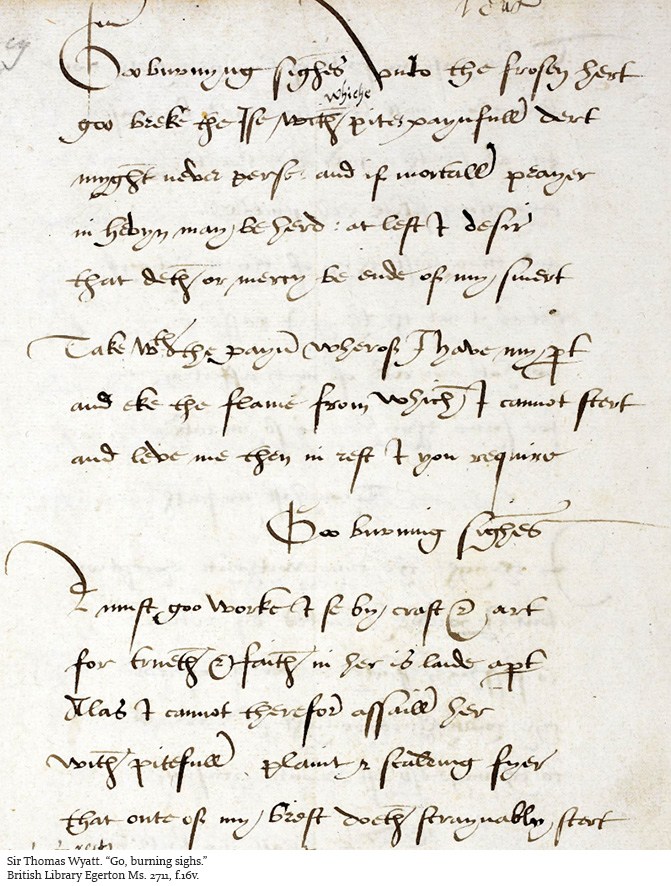 Goo burnyng sighes vnto the frosen hert
whiche
goo breke the Ise with pites paynfull dert
myght never perse: and if mortall prayer
in hevyn may be herd: at lest I desir
that deth or mercy be ende of my smert
Take with the payn wherof I have my part
and eke the flame from which I cannot stert
and leve me then in rest I you require
Goo burning sighes
I must goo worke I se by craft & art
for trueth & faith in her is laide apart
Alas I cannot therefor assaill her
with pitefull plaint & scalding fyer
that oute of my brest doeth straynably stert
Sir Thomas Wyatt. “Go, burning sighs.”
British Library Egerton Ms. 2711, f.16v.